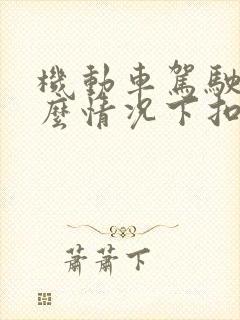 機動車駕駛
麼情况下扣
蕭蕭下